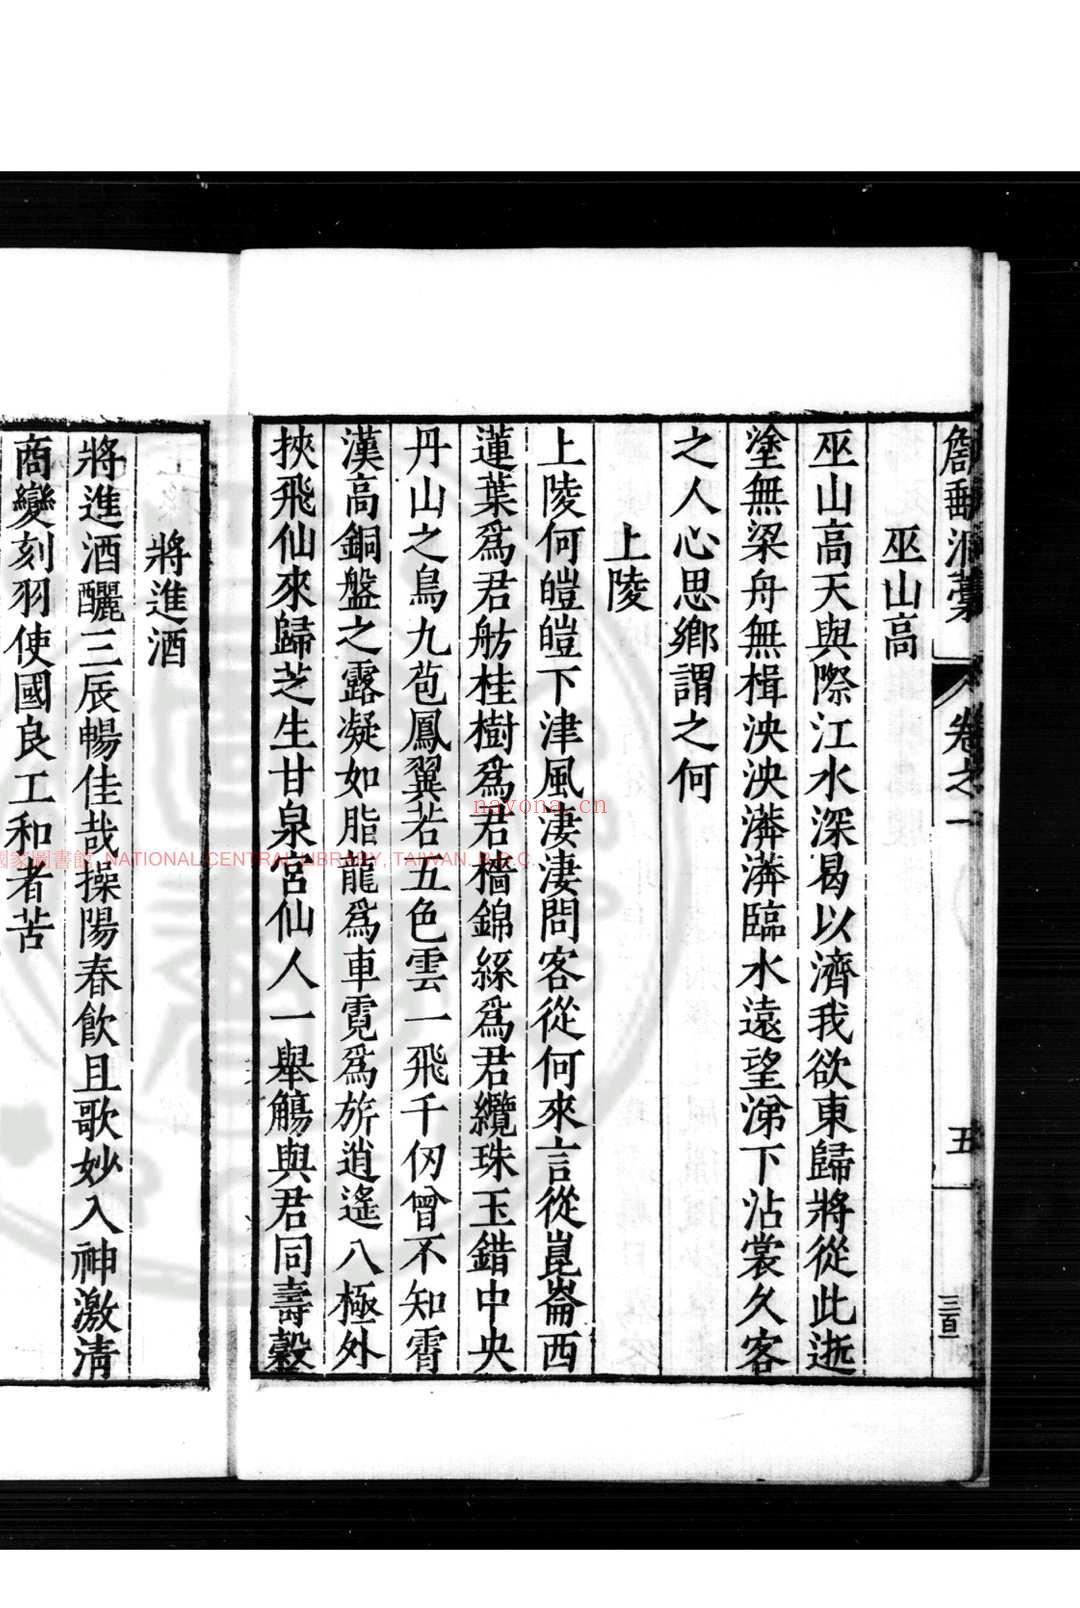 卷之一
五
三百一
巫山高
巫山高天與際江水深曷以濟我欲東歸將從此逝
塗無梁舟無楫泱泱漭漭臨水遠望涕下沾裳久客
之人心思鄉謂之何
上陵
上陵何皚皚下津風淒淒問客從何來言從崑崙西
蓮葉爲君舫桂樹爲君檣錦絲爲君纜珠玉錯中央
丹山之鳥九苞鳳翼若五色雲一飛千仞曾不知霄
漢高銅盤之露凝如脂龍爲車霓爲旂逍遙八極外
挾飛仙來歸芝生甘泉宮仙人一舉觴與君同壽穀
將進酒
將進酒釃三辰暢佳哉操陽春飲且歌妙入神激淸
商變刻羽使國良工和者苦
nayona.cn
國家圖書館, NATIONAL CENTRAL LIBRARY, TAIWAN, R.O.C.